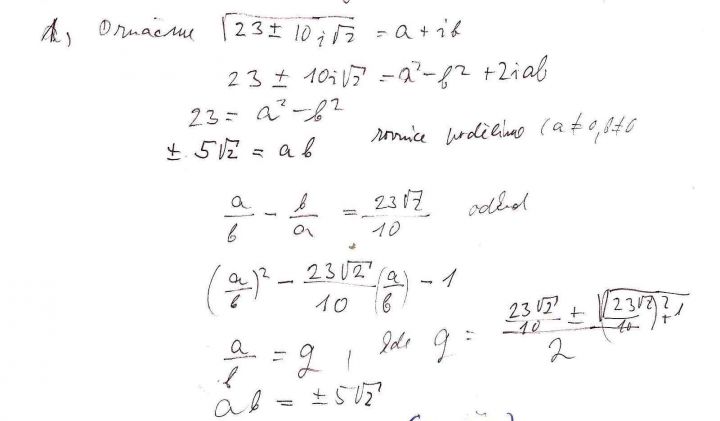 1, Označme √(23 ± 10i√2) = a + ib
23 ± 10i√2 = a² - b² + 2iab
23 = a² - b²
± 5√2 = ab rovnice podělíme (a ≠ 0, b ≠ 0
a/b - b/a = 23√2/10 odtud
(a/b)² - 23√2/10 (a/b) - 1
a/b = g, kde g = (23√2/10 ± √((23√2/10)² + 1))/2
ab = ±5√2